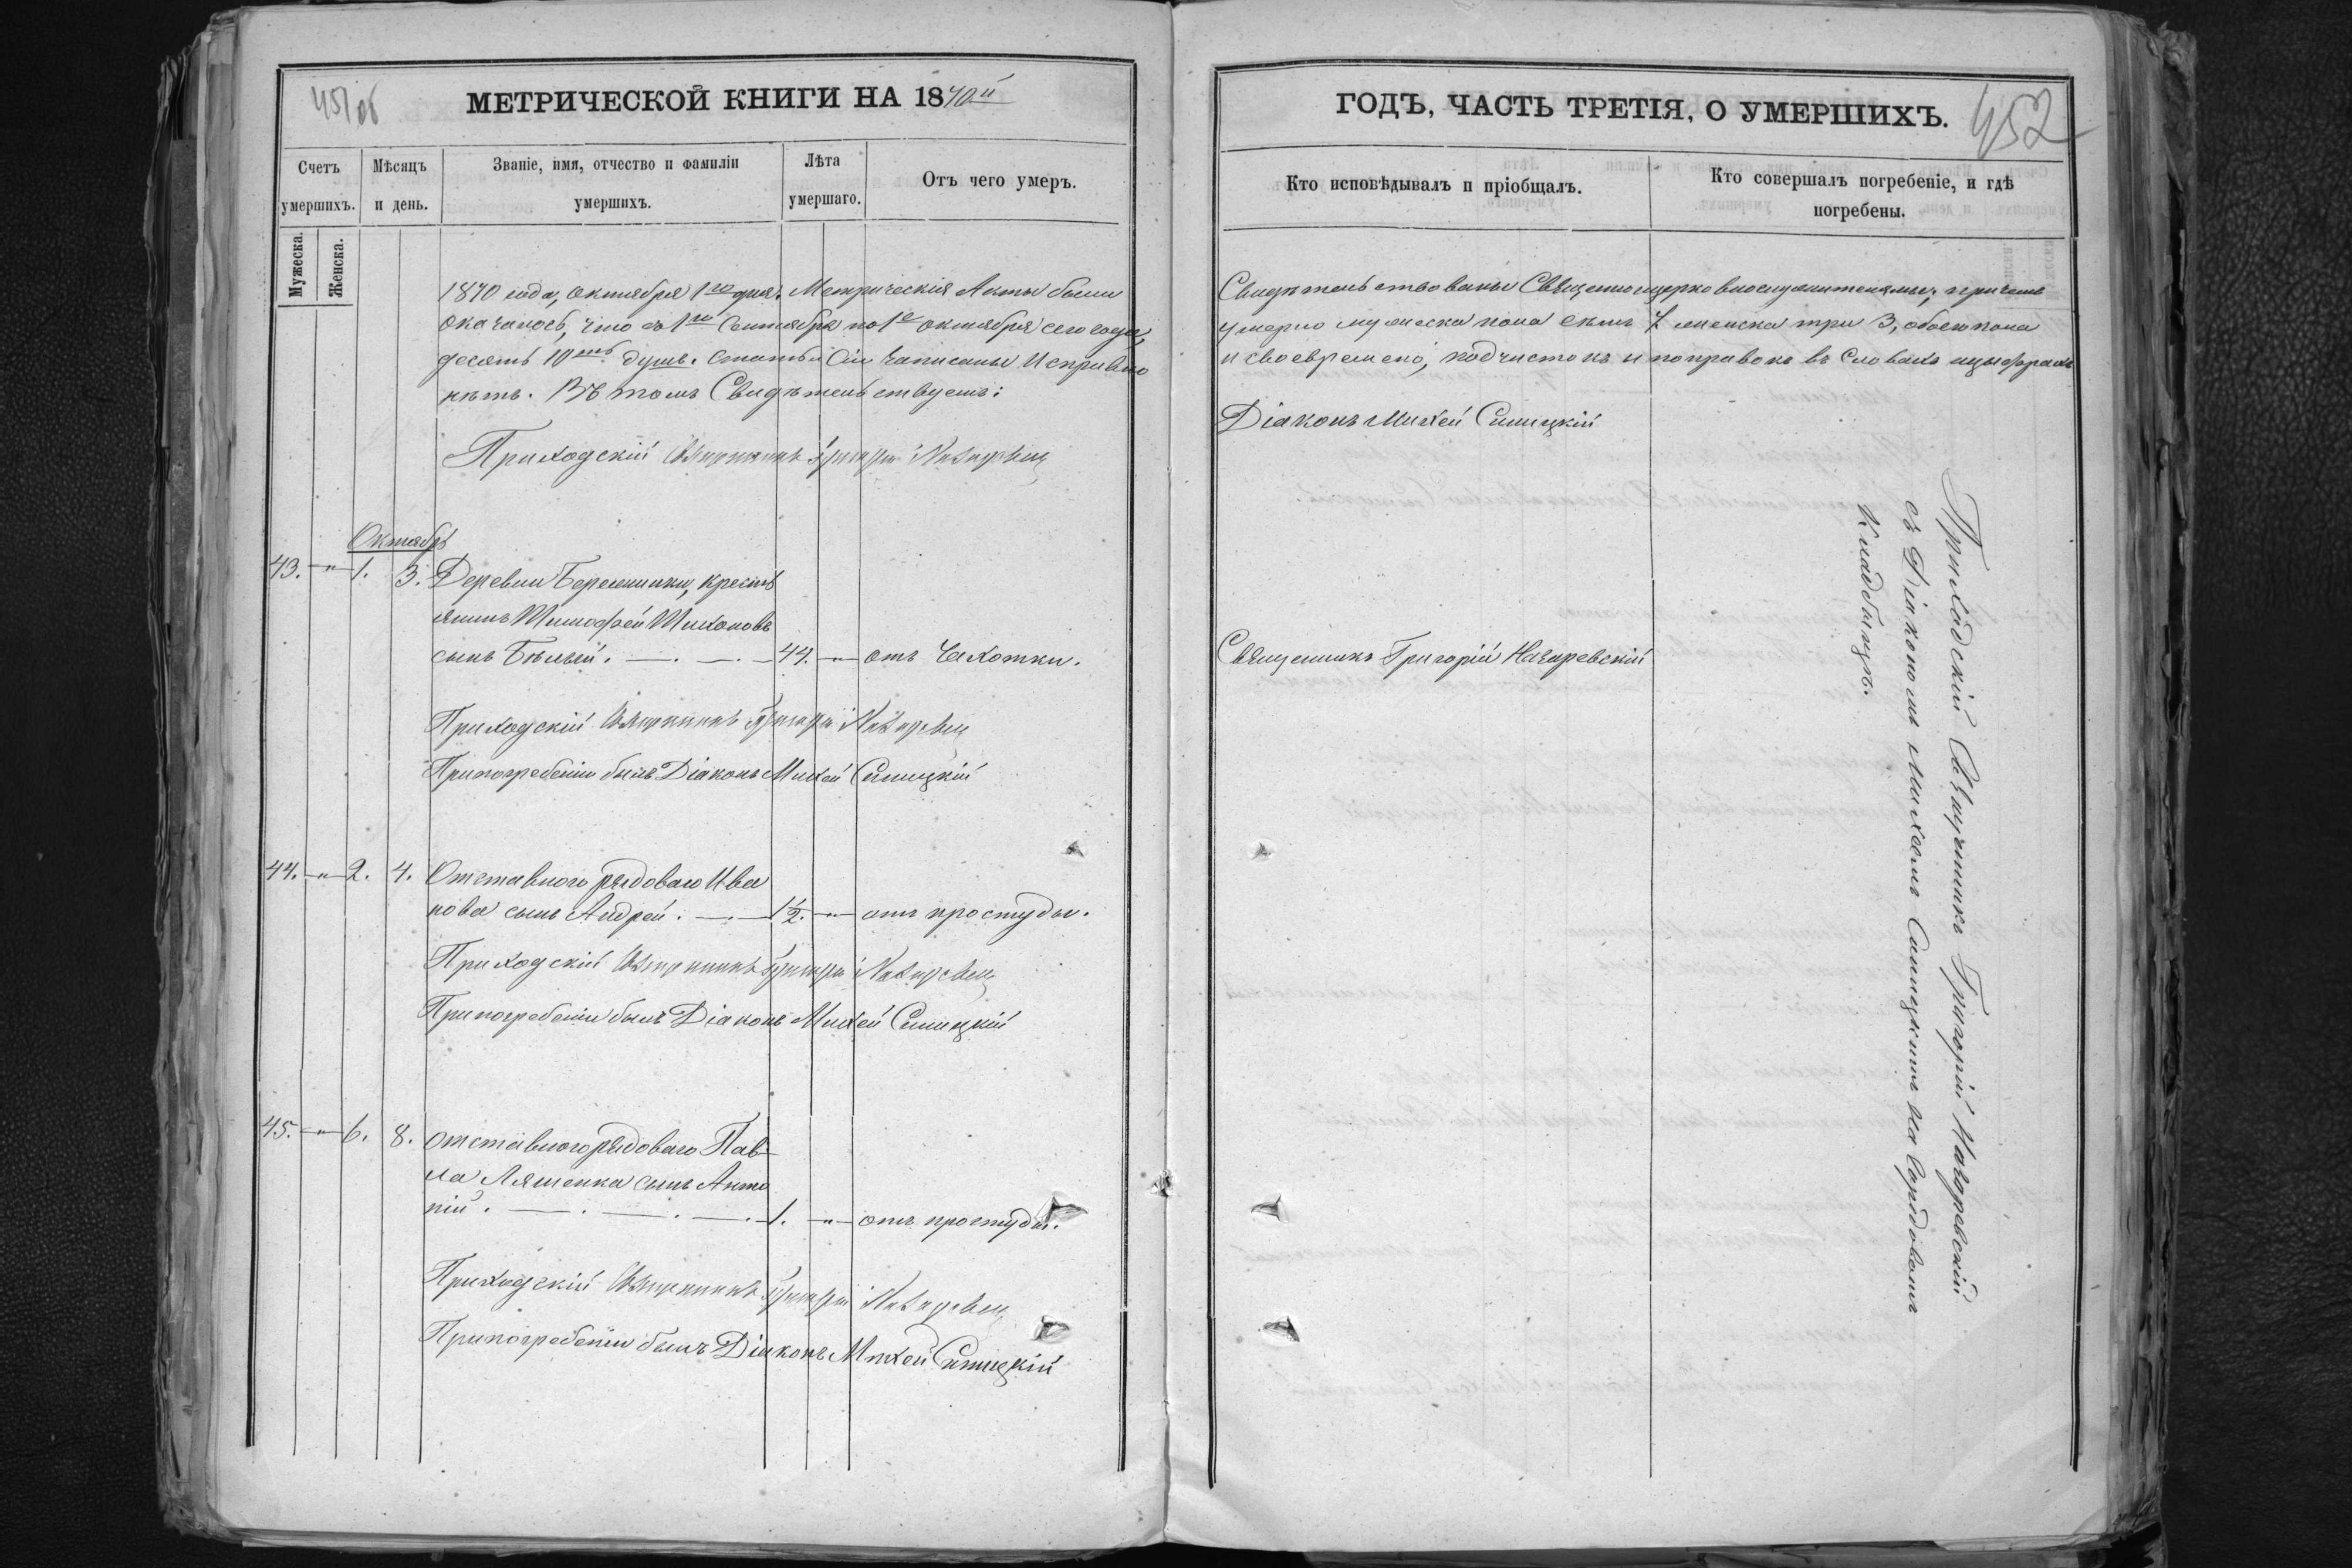 451 об
МЕТРИЧЕСКОЙ КНИГИ НА 1870й
Счетъ умершихъ.
Мужеска.
Женска.
Мѣсяцъ и день.
Званіе, имя, отчество и фамиліи умершихъ.
Лѣта умершаго.
Отъ чего умеръ.
1870 года, октября 1го дня. Метрическія Акты были
Оказалось, что съ 1го Сентября по 1е октября сего года,
десять 10ть душъ. Статьи Сіи Записаны Исправно
нѣтъ. Въ томъ Свидѣтельствуемъ:
Приходскій Священникъ Григорій
Октябрь
43. " 1. 3. Деревни Бережники, крестъ
янинъ Тимофей Тихоновъ
сынъ Бѣлый. 44. " отъ Чахотки.
Приходскій Священникъ Григорій
При погребеніи былъ Діаконъ Михей Синицкій
44. " 2. 4. Отставного рядоваго Ива
нова сынъ Андрей. 1/2. " отъ простуды.
Приходскій Священникъ Григорій
При погребеніи былъ Діаконъ Михей Синицкій
45. " 6. 8. отставного рядоваго Пав-
ла Ляшенка сынъ Анто
ній. 1. " отъ простуды.
Приходскій Священникъ Григорій
При погребеніи былъ Діаконъ Михей Синицкій
ГОДЪ, ЧАСТЬ ТРЕТІЯ, О УМЕРШИХЪ.
452
Кто исповѣдывалъ и пріобщалъ.
Кто совершалъ погребеніе, и гдѣ погребены.
Свидѣтельствованы Священноцерковнослужителями, причемъ
умерло мужеска пола семъ 7 женска три 3, обоего пола
и своевремено, подчистокъ и поправокъ въ Словахъ и цыфрахъ
Діаконъ Михей Синицкій
Священникъ Григорій Назаревскій
Приходскій Священникъ Григорій Назаревскій
съ Діакономъ Михеемъ Синицкимъ на
Кладбищѣ.